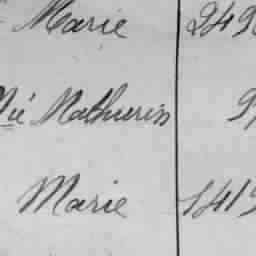 Marie 249
Mathurin 9
Marie 1419